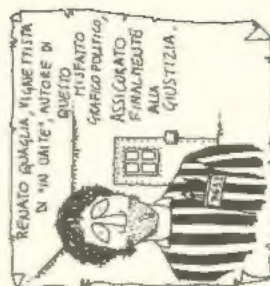 RENATO QUAGLIA, VIGNETTISTA
DI "IN UAITE", AUTORE DI
QUESTO
MISFATTO
GRAFICO POLITICO,
ASSICURATO
FINALMENTE
ALLA
GIUSTIZIA.